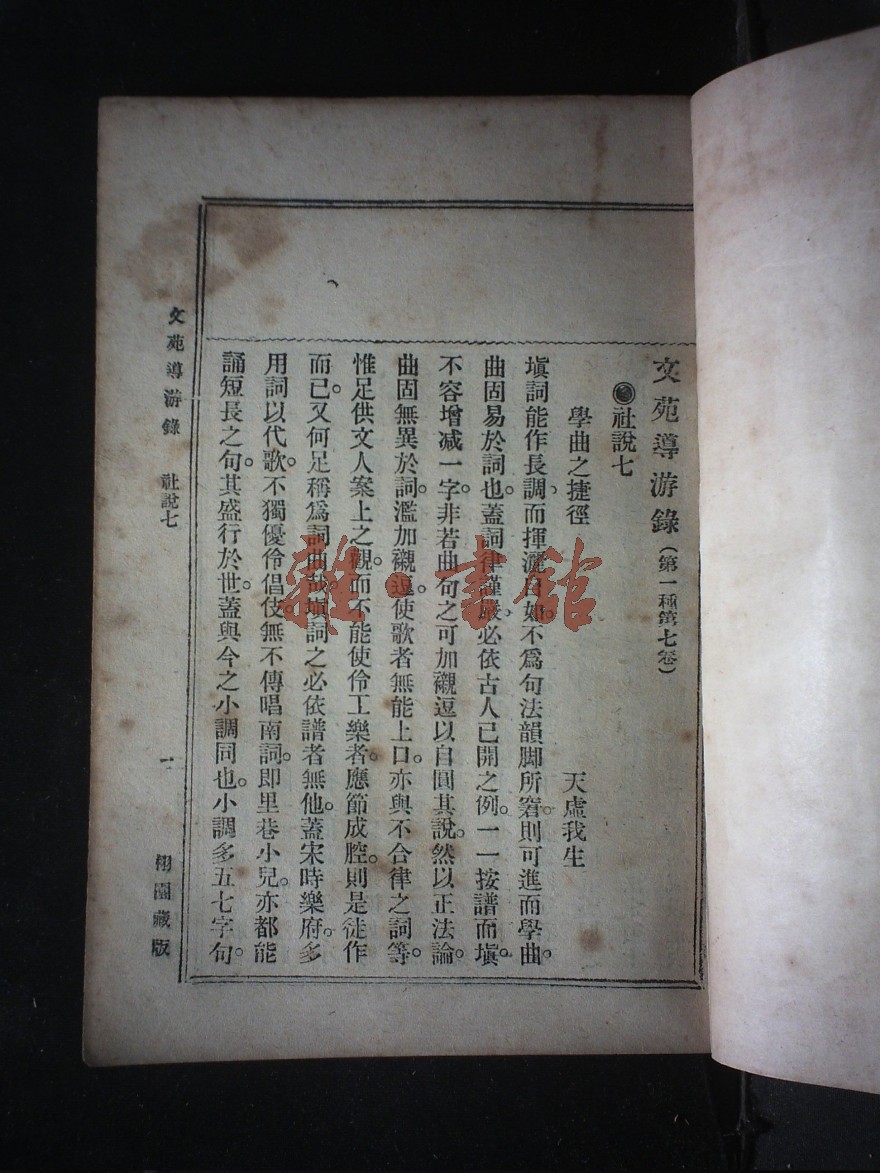 文苑導游錄(第一種第七卷)
社說七
學曲之捷徑
天虛我生
塡詞能作長調、而揮灑自如。不爲句法韻脚所窘。則可進而學曲。
曲固易於詞也。蓋詞律謹嚴、必依古人已開之例。一一按譜而塡。
不容增减一字。非若曲句之可加襯逗以自圓其說。然以正法論。
曲固無異於詞。濫加襯逗。使歌者無能上口。亦與不合律之詞等。
惟足供文人案上之觀。而不能使伶工樂者。應節成腔。則是徒作
而已。又何足稱爲詞曲哉。塡詞之必依譜者無他。蓋宋時樂府。多
用詞以代歌。不獨優伶倡伎。無不傳唱南詞。即里巷小兒。亦都能
誦短長之句。其盛行於世。蓋與今之小調同也。小調多五七字句。
文苑導游錄 社說七 一 栩園藏版
雜·書館